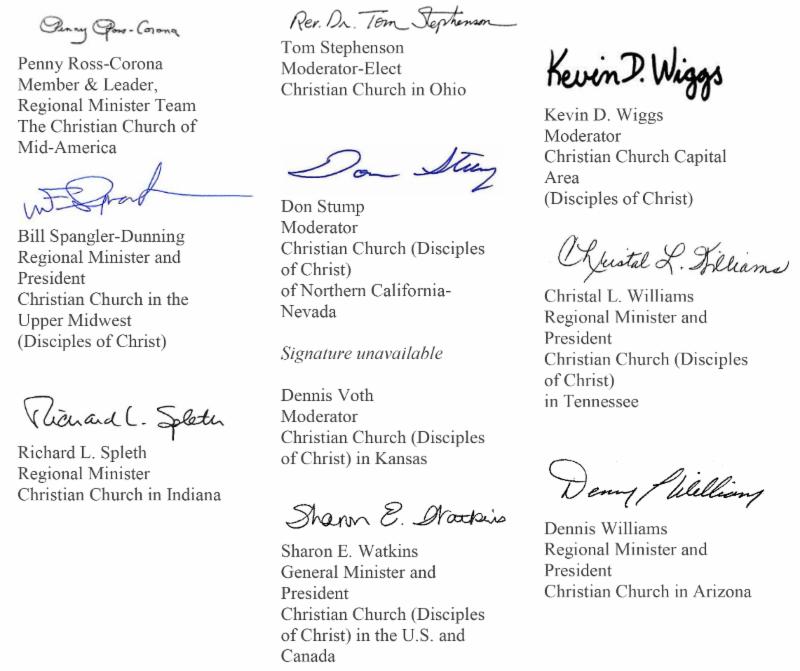 Penny Ross-Corona
Penny Ross-Corona
Member & Leader,
Regional Minister Team
The Christian Church of
Mid-America
Bill Spangler-Dunning
Regional Minister and
President
Christian Church in the
Upper Midwest
(Disciples of Christ)
Richard L. Spleth
Richard L. Spleth
Regional Minister
Christian Church in Indiana
Rev. Dr. Tom Stephenson
Tom Stephenson
Moderator-Elect
Christian Church in Ohio
Don Stump
Don Stump
Moderator
Christian Church (Disciples
of Christ)
of Northern California-
Nevada
Signature unavailable
Dennis Voth
Moderator
Christian Church (Disciples
of Christ) in Kansas
Sharon E. Watkins
Sharon E. Watkins
General Minister and
President
Christian Church (Disciples
of Christ) in the U.S. and
Canada
Kevin D. Wiggs
Kevin D. Wiggs
Moderator
Christian Church Capital
Area
(Disciples of Christ)
Christal L. Williams
Christal L. Williams
Regional Minister and
President
Christian Church (Disciples
of Christ)
in Tennessee
Denny Williams
Dennis Williams
Regional Minister and
President
Christian Church in Arizona